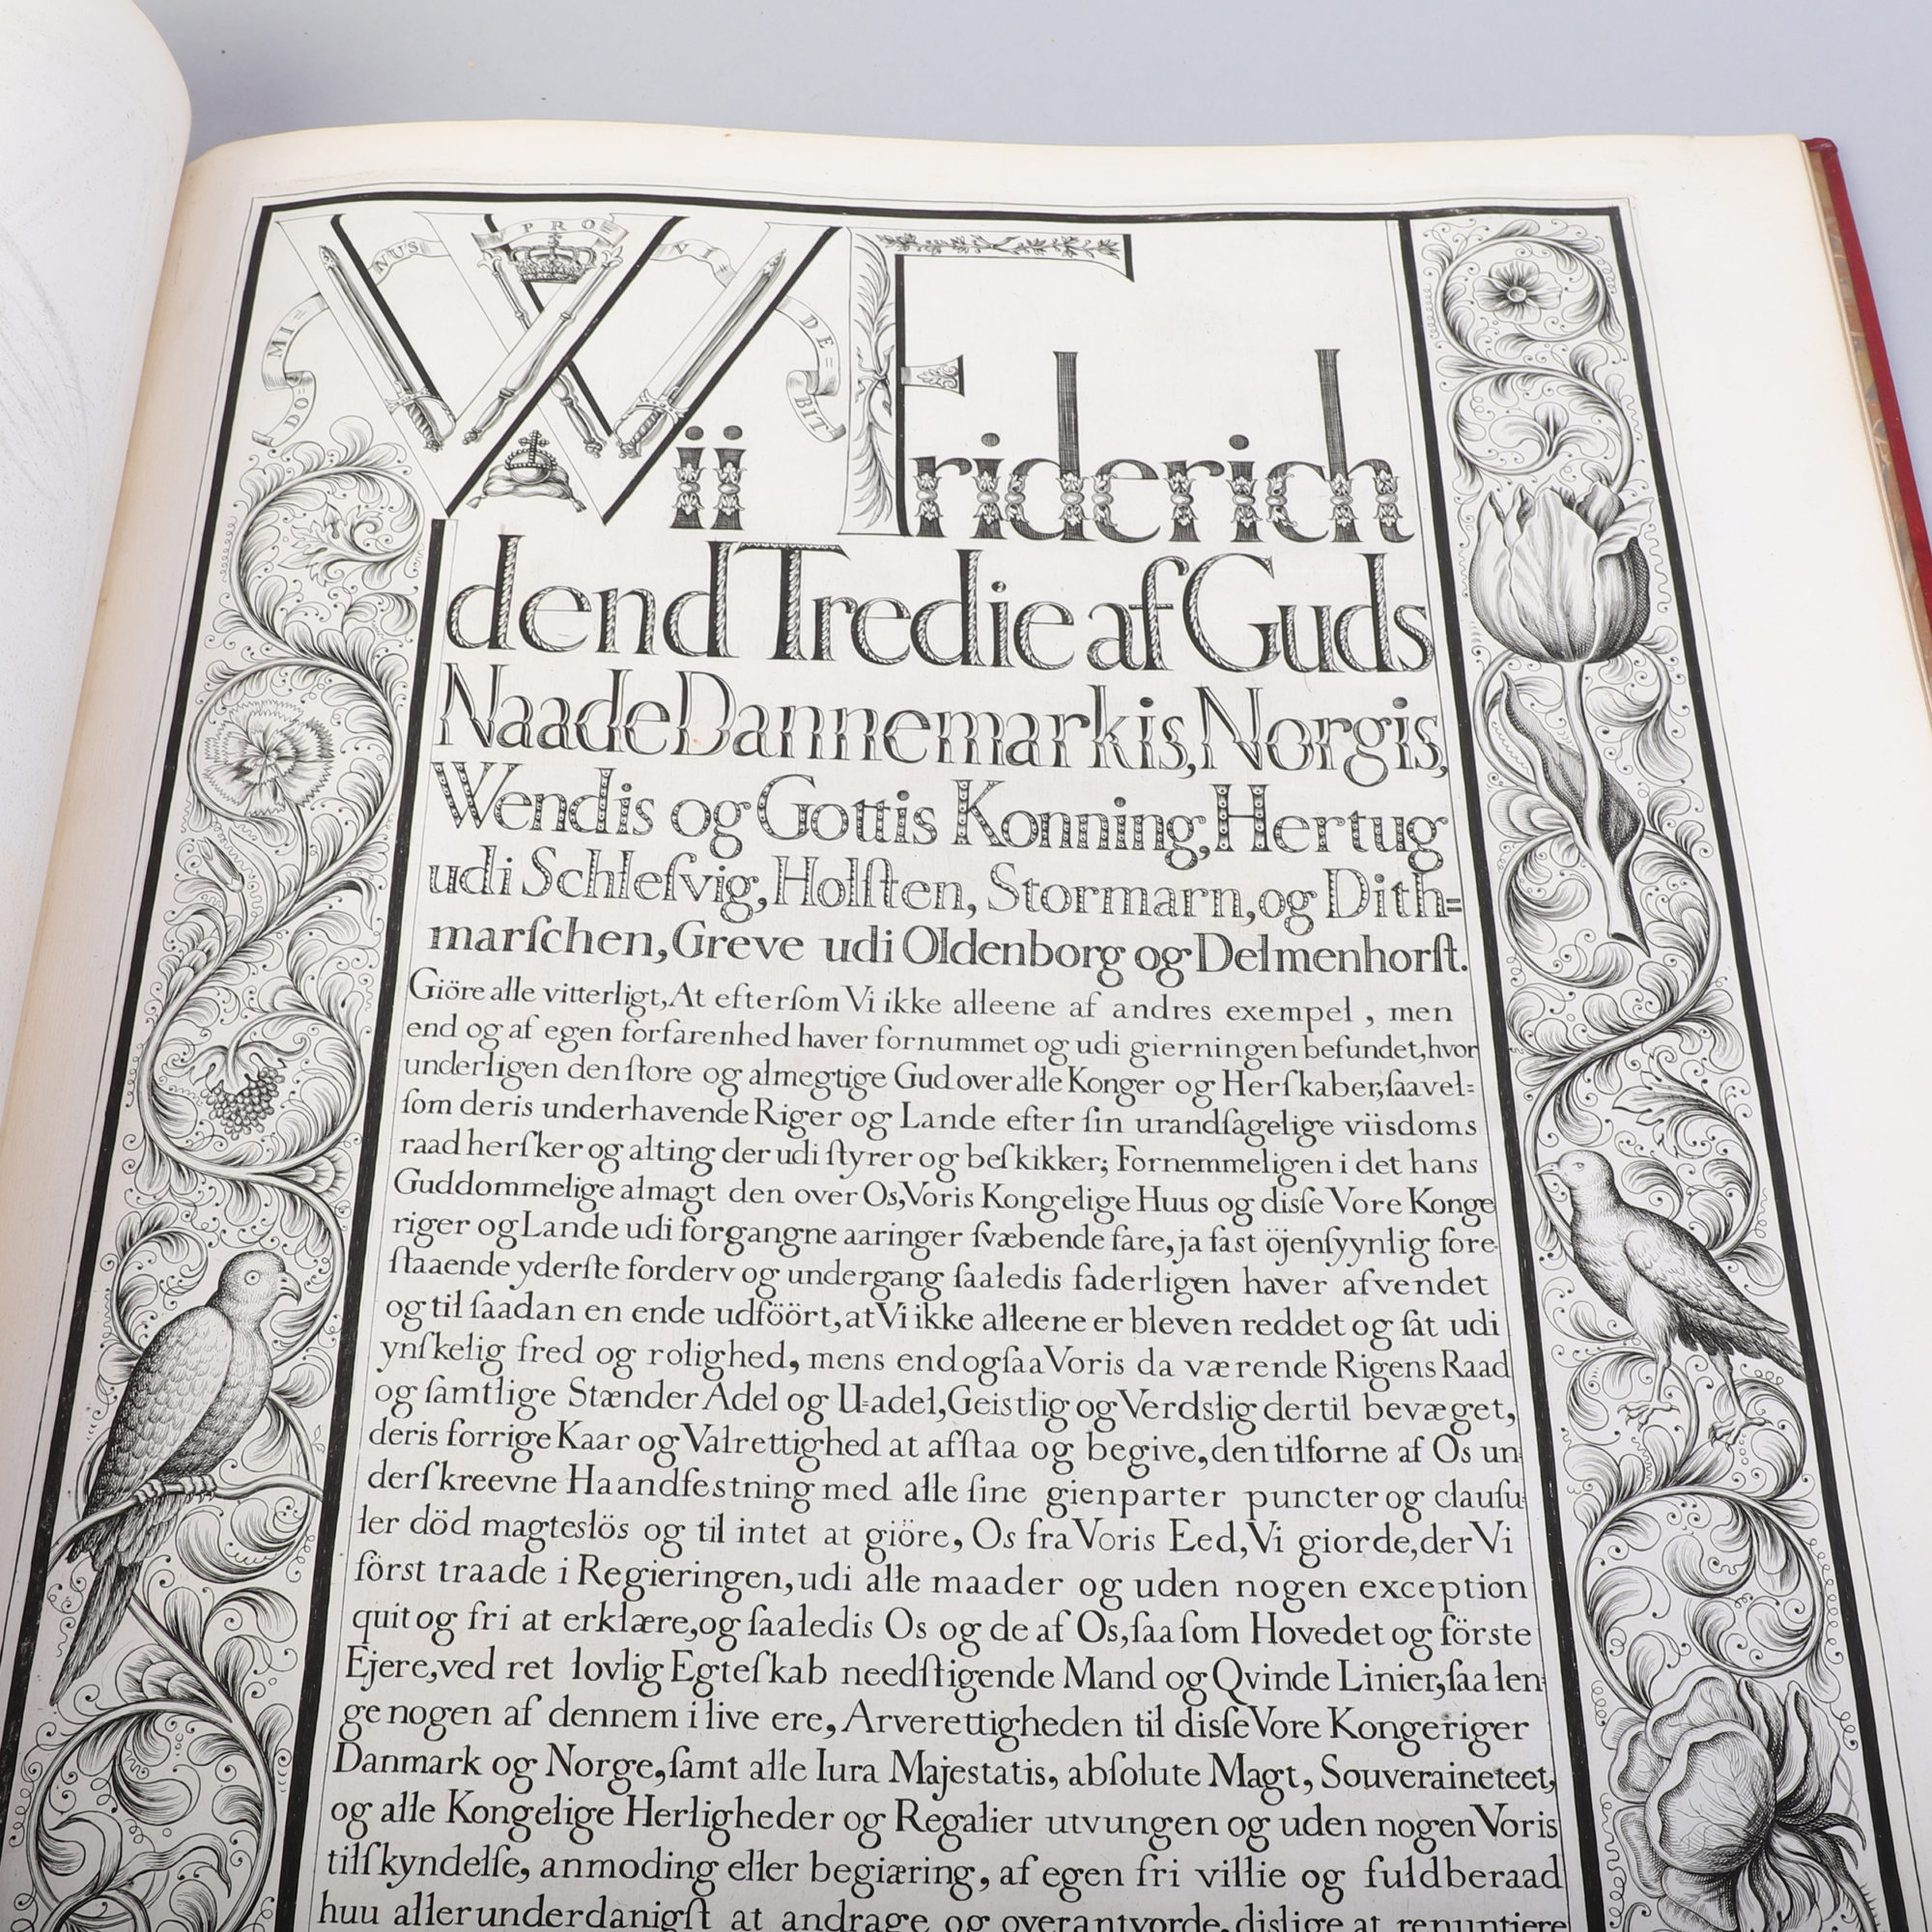 DO= MI= NUS PRO= VI= DE= BIT
Wii Friderich
dend Tredie af Guds
Naade Dannemarkis, Norgis,
Wendis og Gottis Konning, Hertug
udi Schleſvig, Holſten, Stormarn, og Dith=
marſchen, Greve udi Oldenborg og Delmenhorſt.
Giöre alle vitterligt, At efterſom Vi ikke alleene af andres exempel, men
end og af egen forfarenhed haver fornummet og udi gierningen befundet, hvor
underligen den ſtore og almegtige Gud over alle Konger og Herſkaber, ſaavel=
ſom deris underhavende Riger og Lande efter ſin urandſagelige viisdoms
raad herſker og alting der udi ſtyrer og beſkikker; Fornemmeligen i det hans
Guddommelige almagt den over Os, Voris Kongelige Huus og disſe Vore Konge
riger og Lande udi forgangne aaringer ſvæbende fare, ja fast öjenſyynlig fore-
ſtaaende yderſte forderv og undergang ſaaledis faderligen haver afvendet
og til ſaadan en ende udföört, at Vi ikke alleene er bleven reddet og ſat udi
ynſkelig fred og rolighed, mens end ogſaa Voris da værende Rigens Raad
og ſamtlige Stænder Adel og U=adel, Geistlig og Verdslig dertil bevæget,
deris forrige Kaar og Valrettighed at afſtaa og begive, den tilforne af Os un=
derſkreevne Haandfestning med alle ſine gienparter puncter og clauſu=
ler död magteslös og til intet at giöre, Os fra Voris Eed, Vi giorde, der Vi
förſt traade i Regieringen, udi alle maader og uden nogen exception
quit og fri at erklære, og ſaaledis Os og de af Os, ſaa ſom Hovedet og förste
Ejere, ved ret lovlig Egteſkab needſtigende Mand og Qvinde Linier, ſaa len=
ge nogen af dennem i live ere, Arverettigheden til disſe Vore Kongeriger
Danmark og Norge, ſamt alle Iura Majestatis, abſolute Magt, Souveraineteet,
og alle Kongelige Herligheder og Regalier utvungen og uden nogen Voris
tilſkyndelſe, anmoding eller begiæring, af egen fri villie og fuldberaad
huu allerunderdanigſt at andrage og overantvorde, dislige at renuntiere